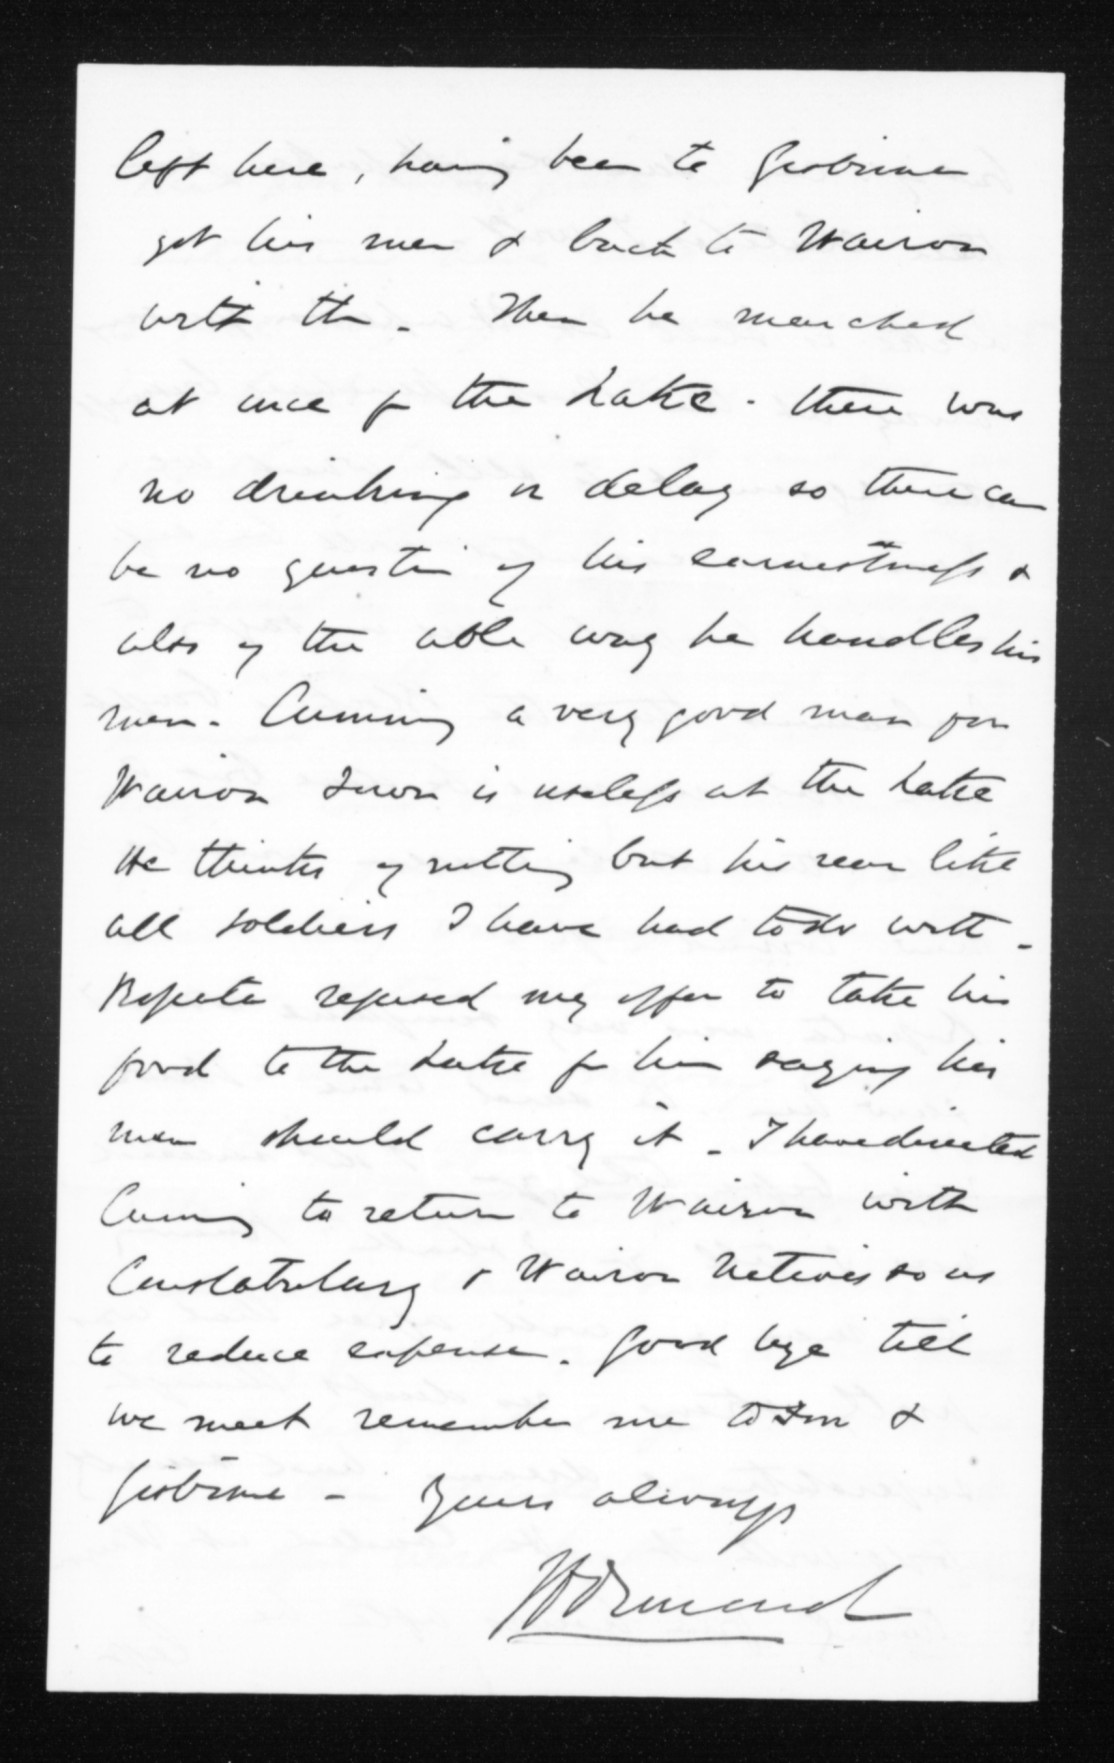 left here, having been to Gisborne
got his men & back to Wairoa
with th. Then he marched
at once fr the Lake. there was
no drinking or delay so there can
be no question of his earnestness &
also of the able way he handles his
men. Cumming a very good man for
Wairoa Town is useless at the Lake
He thinks of nothing but his rear like
all soldiers I have had to do with.
Ropata refused my offer to take his
food to the Lake fr him saying his
men should carry it. I have directed
Cuming to return to Wairoa with
Constabulary & Wairoa Natives so as
to reduce expense. Good bye till
we meet remember me to &
Gisborne - Yours always
JDOrmond